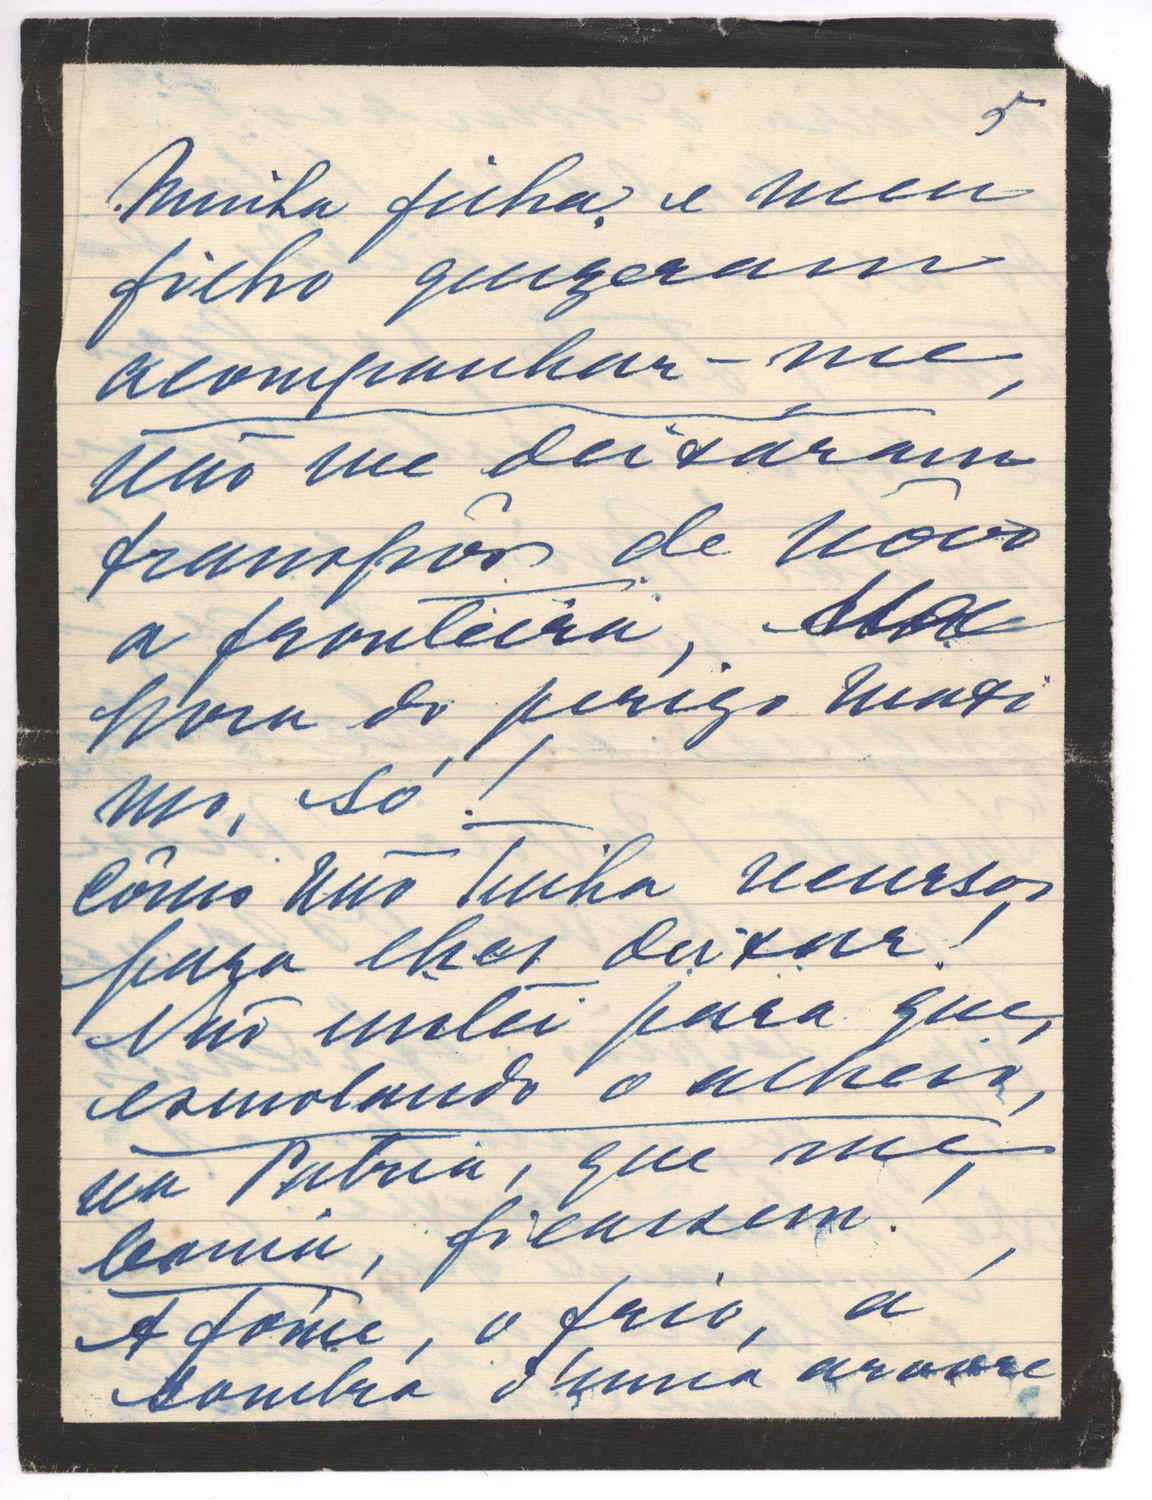 5
Minha filha, e meu
filho quizeram
acompanhar-me,
não me deixáram
transpôr de nôvo
a fronteira, na
hora do perigo maxi
mo, só!
Cômo não tinha recursos
para lhes deixar!
Não insteí para que,
esmolando o alheio,
na Patria, que me,
bania, ficassem!
A fôme, o frio, á
sombra d'uma arvore